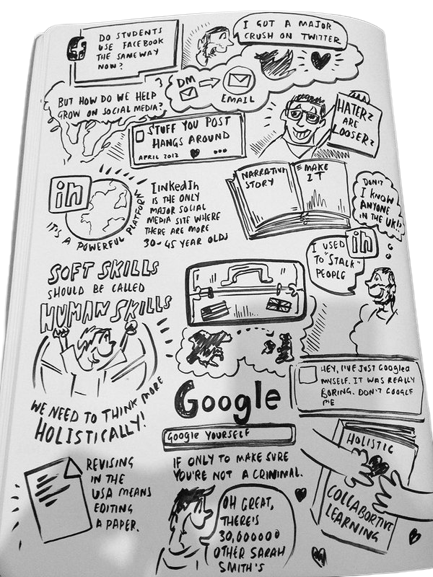 f
DO STUDENTS
USE FACEBOOK
THE SAME WAY
NOW?
I GOT A MAJOR
CRUSH ON TWITTER
DM
EMAIL
BUT HOW DO WE HELP
GROW ON SOCIAL MEDIA?
STUFF YOU POST
HANGS AROUND
APRIL 2012
HATERZ
ARE
LOOSERZ
in
IT'S A POWERFUL PLATFORM
LINKEDIN
IS THE ONLY
MAJOR SOCIAL
MEDIA SITE WHERE
THERE ARE MORE
30-45 YEAR OLDS
NARRATIVE
STORY
MAKE
IT
DON'T
I KNOW
ANYONE
IN THE UK!?
in
I USED
TO "STALK"
PEOPLE
SOFT SKILLS
SHOULD BE CALLED
HUMAN SKILLS
WE NEED TO THINK MORE
HOLISTICALLY!
Google
GOOGLE YOURSELF
IF ONLY TO MAKE SURE
YOU'RE NOT A CRIMINAL.
HEY, I'VE JUST GOOGLED
MYSELF. IT WAS REALLY
BORING. DON'T GOOGLE
ME
REVISING
IN THE
USA MEANS
EDITING
A PAPER.
OH GREAT,
THERE'S
30,600000
OTHER SARAH
SMITH'S
HOLISTIC
COLLABORTIVE
LEARNING